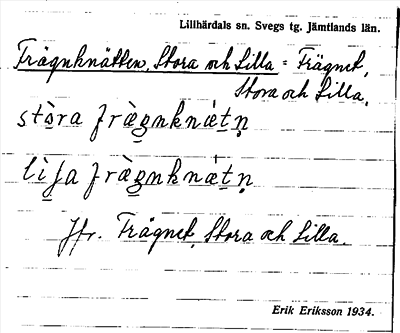 Lillhärdals sn. Svegs tg. Jämtlands län.
Frägnknätten, Stora och Lilla = Frägnet,
Stora och Lilla.
stòra fràgnknǽtn̥
lìsa fràgnknætn̥
Jfr. Frägnet, Stora och Lilla.
Erik Eriksson 1934.